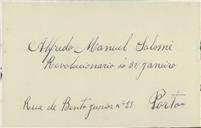 Alfredo Manuel Salomé
Revolucionario do 31 janeiro
Rua de Bento Junior nº 23 Porto